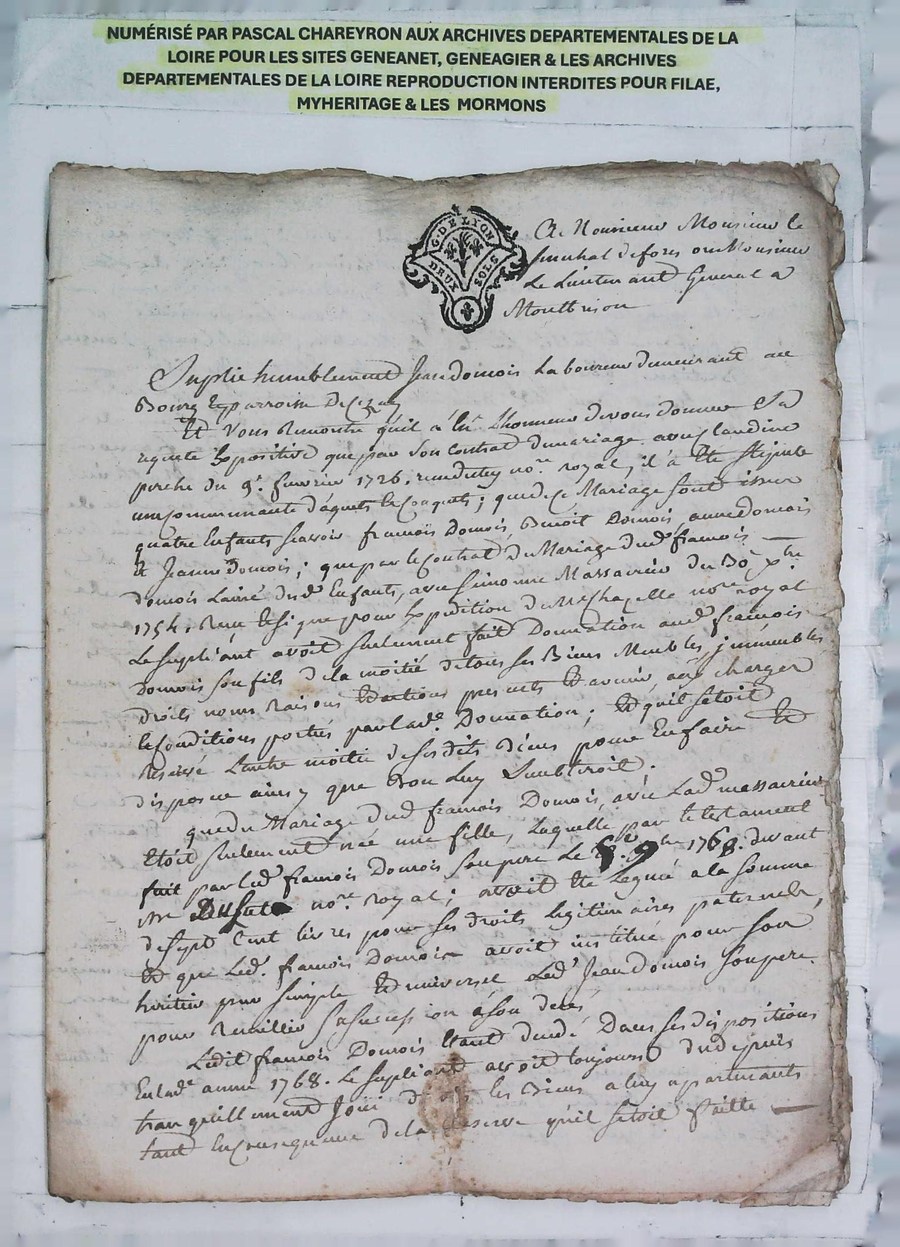 NUMÉRISÉ PAR PASCAL CHAREYRON AUX ARCHIVES DEPARTEMENTALES DE LA
LOIRE POUR LES SITES GENEANET, GENEAGIER & LES ARCHIVES
DEPARTEMENTALES DE LA LOIRE REPRODUCTION INTERDITES POUR FILAE,
MYHERITAGE & LES MORMONS
G. DE LYON
DEUX SOLS
A Monsieur Monsieur le
senechal deforez ou Monsieur
Le Lieutenant General a
Montbrison
Suplie humblement Jean domois Laboureur demeurant au
Bourg & parroisse De
Et Vous Remontre quil a L'honneur devous donner Sa
requete Expositive que par Son Contrat demariage avec Claudine
du 9e. fevrier 1726. nore. royal, il à Eté Stipulé
une Communauté d'aquets & Conquets; que de Ce Mariage sont issus
quatre Enfants Scavoir francois Domois, Benoit Domois, anne domois
Et Jeanne domois; que par le Contrat de Mariage dud. francois
domois L'ainé desd. Enfants, avec Massacrier du 30 xbre
1754. Reçu Et signé pour Expedition nore royal
Le supliant avoit seulement fait Donnation aud. francois
Domois son fils de la moitié detous ses Biens Meubles, immeubles
droits noms raisons Et actions presents Et avenir, aux charges
& Conditions portés par lade. Donnation; Et quil setoit
reservé L'autre moitié desesdits Biens pour En faire Et
disposer ainsy que Bon Luy Sembleroit.
que du Mariage dud. francois Domois, avec Lad. massacrier
Etoit seulement née une fille, Laquelle par le testament
fait par Led. francois Domois Son pere Le 9bre 1768. devant
Me nore. royal; avoit Eté Leguée a la somme
de sept Cent livres pour ses droits Legitimaires paternels,
Et que Led. francois Domois avoit institué pour son
heritier pur simple Et universel Led. Jean domois Son pere.
pour Recuillir sa succession a son decés,
Ledit francois Domois Etant decedé Dans ses dispositions
En lade année 1768. Le supliant avoit toujours du depuis
tranquillement Joui de les Biens a luy apartenants
tant En Consequence de la Reserve qu'il setoit faitte